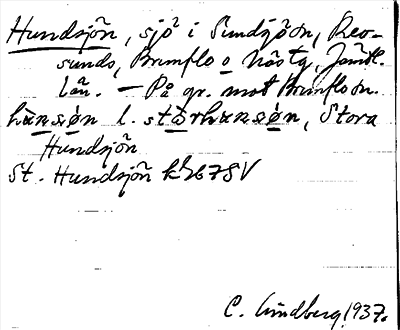 Hundsjön, sjö i Sundsjö sn, Rev-
sunds, Brunflo o Näs tg, Jämtl.
län. — På gr. mot Brunflo sn.
hʉnsøn l. stɵrhʉnsøn, Stora
Hundsjön
St. Hundsjön kbl 67 SV
C. Lindberg 1937.